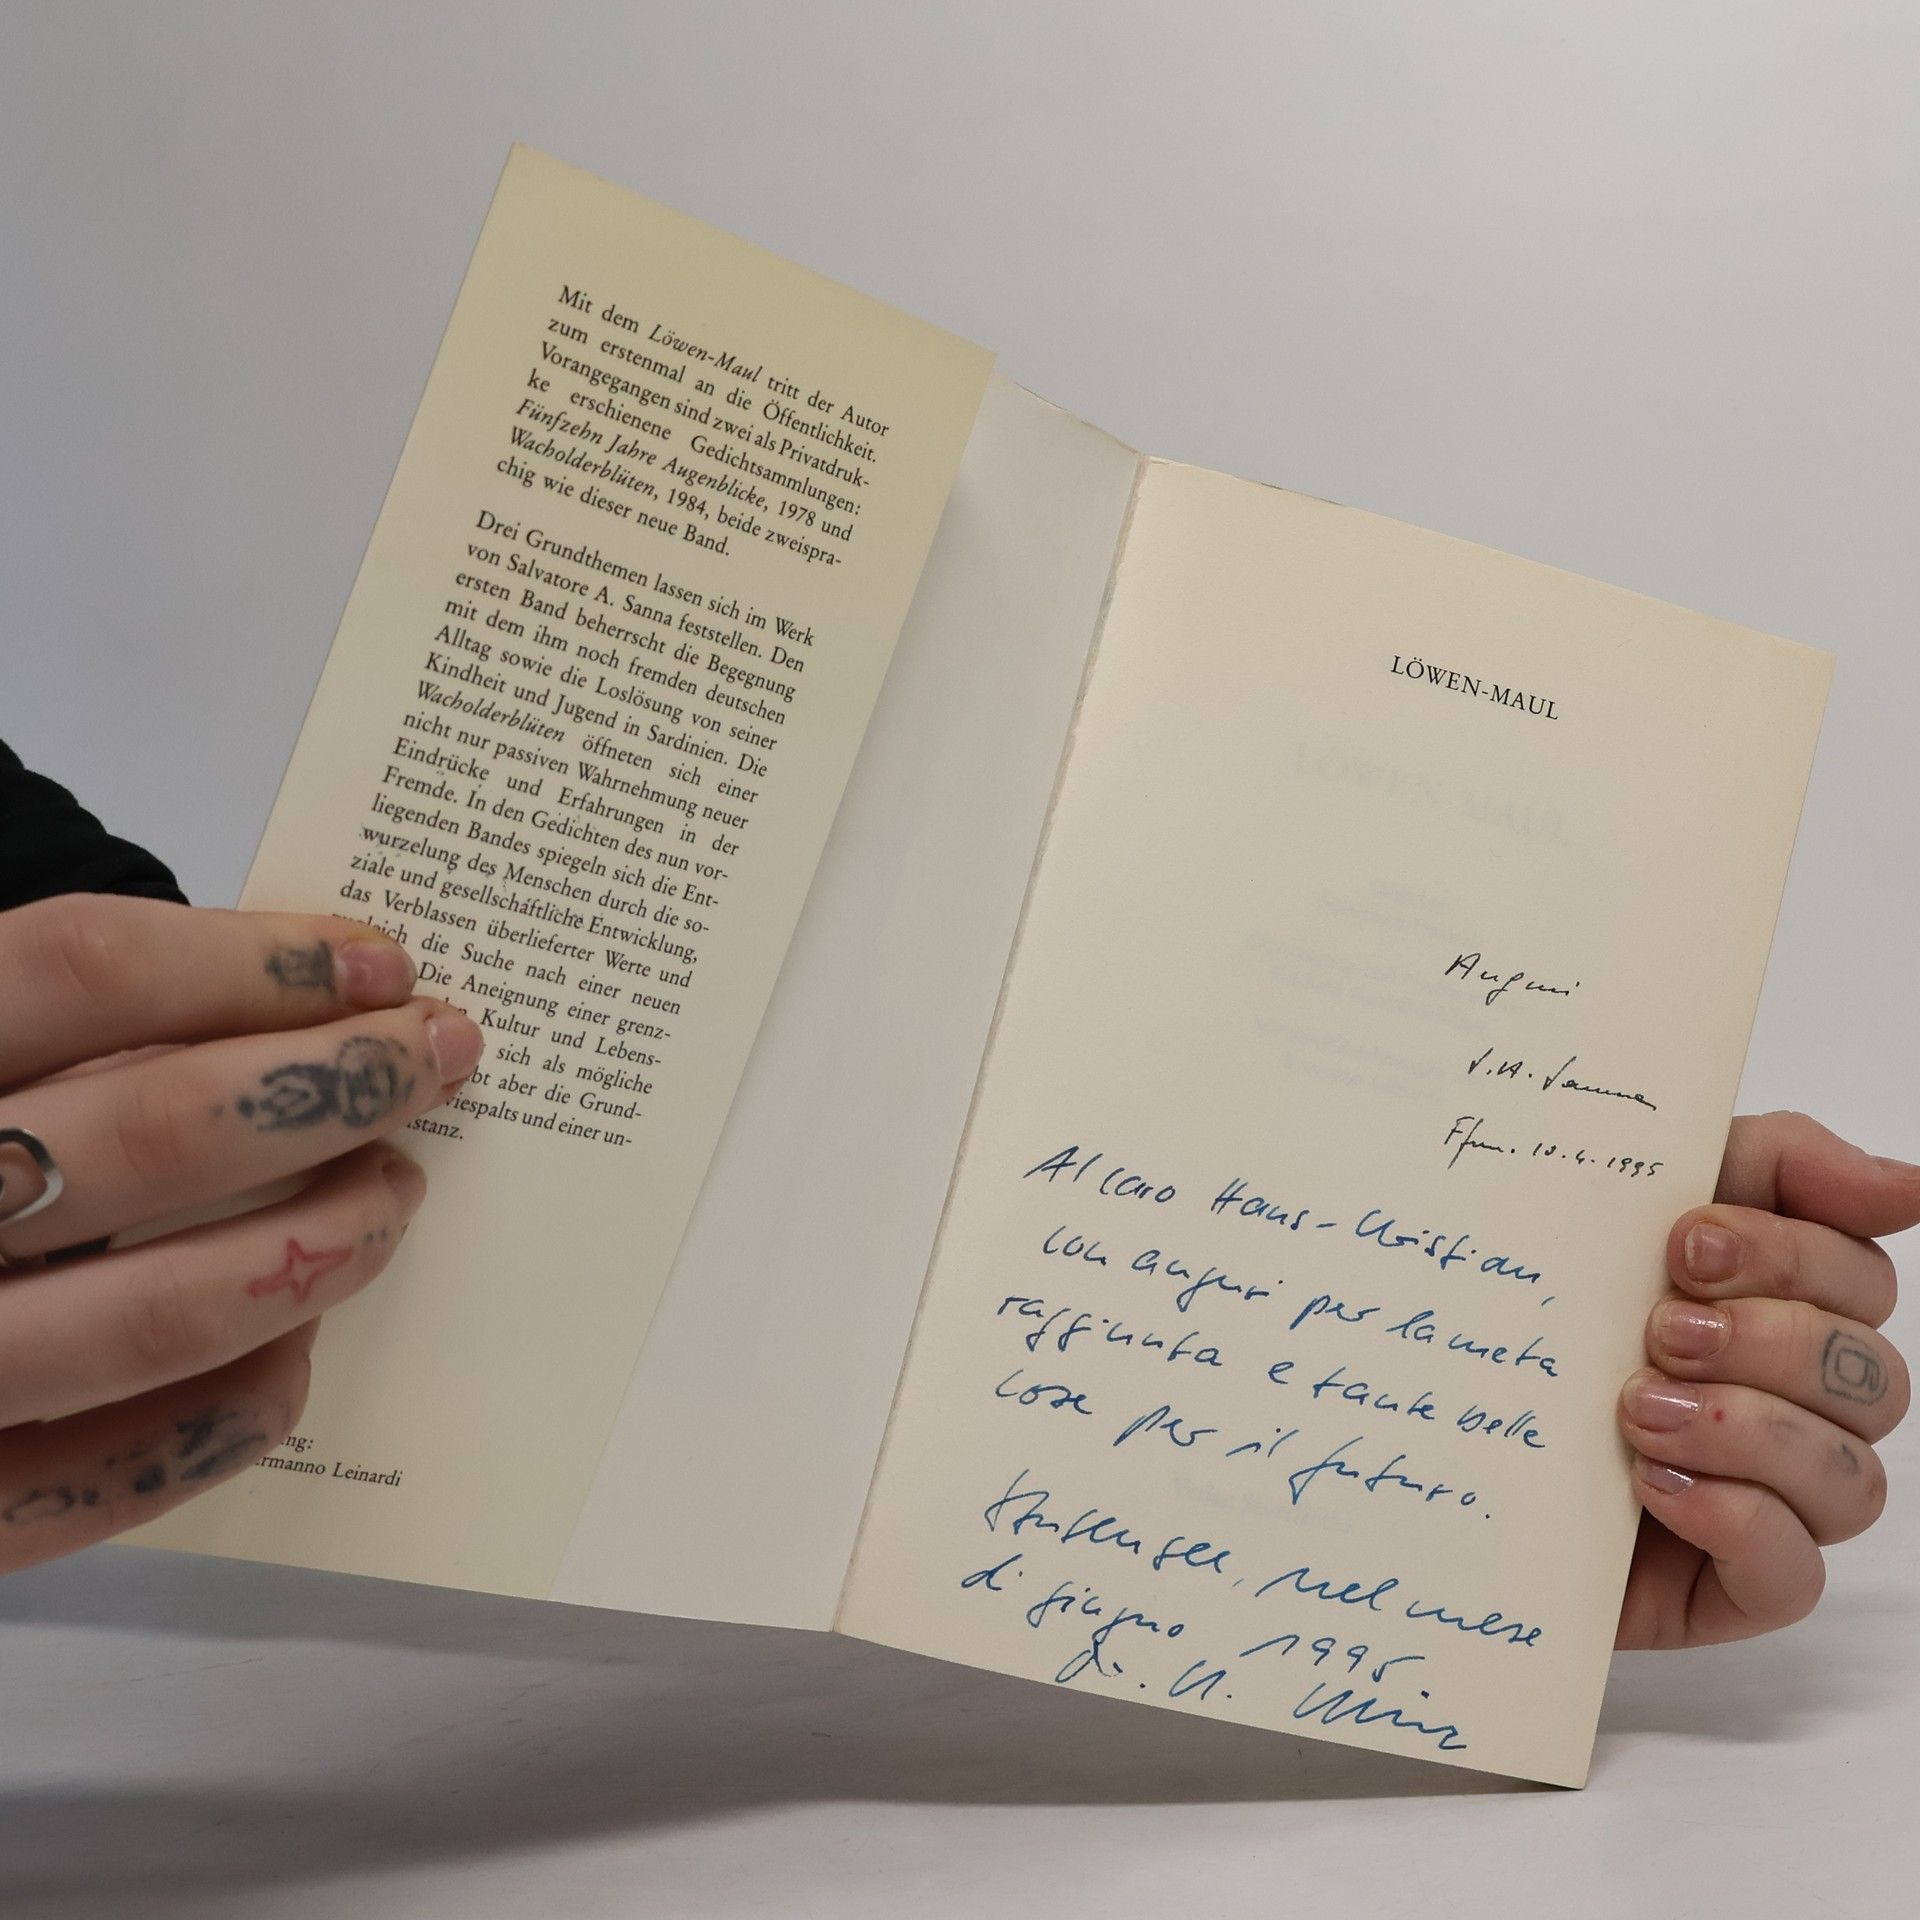 Mit dem Löwen-Maul tritt der Autor
zum erstenmal an die Öffentlichkeit.
Vorangegangen sind zwei als Privatdruk-
ke erschienene Gedichtsammlungen:
Fünfzehn Jahre Augenblicke, 1978 und
Wacholderblüten, 1984, beide zweispra-
chig wie dieser neue Band.
Drei Grundthemen lassen sich im Werk
von Salvatore A. Sanna feststellen. Den
ersten Band beherrscht die Begegnung
mit dem ihm noch fremden deutschen
Alltag sowie die Loslösung von seiner
Kindheit und Jugend in Sardinien. Die
Wacholderblüten öffneten sich einer
nicht nur passiven Wahrnehmung neuer
Eindrücke und Erfahrungen in der
Fremde. In den Gedichten des nun vor-
liegenden Bandes spiegeln sich die Ent-
wurzelung des Menschen durch die so-
ziale und gesellschaftliche Entwicklung,
das Verblassen überlieferter Werte und
zugleich die Suche nach einer neuen
Die Aneignung einer grenz-
Kultur und Lebens-
sich als mögliche
bt aber die Grund-
viespalts und einer un-
stanz.
ng:
ermanno Leinardi
LÖWEN-MAUL
Auguri
S. A. Sanna
Ffm. 10.4.1995
Al caro Hans-Christian,
con auguri per la meta
raggiunta e tante belle
cose per il futuro.
nel mese
di giugno 1995